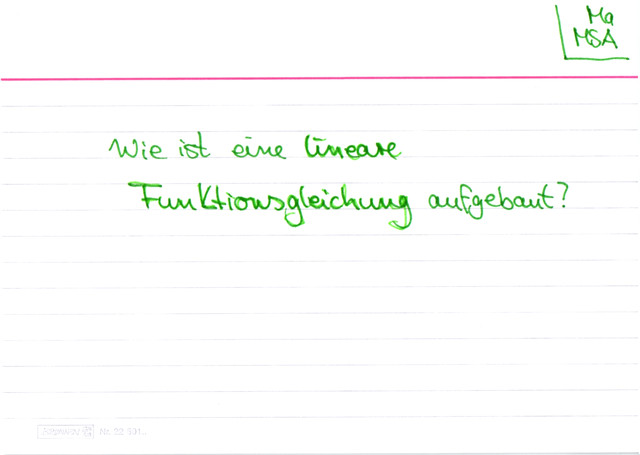 Ma
MSA
Wie ist eine lineare
Funktionsgleichung aufgebaut?